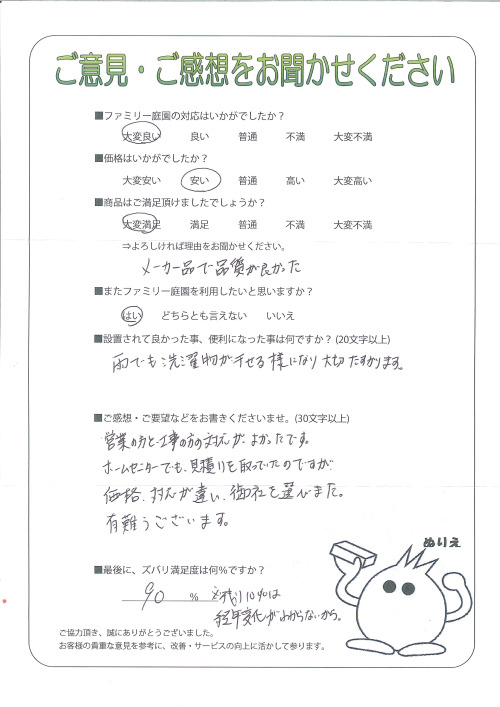 ご意見・ご感想をお聞かせください
■ファミリー庭園の対応はいかがでしたか？
大変良い 良い 普通 不満 大変不満
■価格はいかがでしたか？
大変安い 安い 普通 高い 大変高い
■商品はご満足頂けましたでしょうか？
大変満足 満足 普通 不満 大変不満
⇒よろしければ理由をお聞かせください。
メーカー品で品質が良かった
■またファミリー庭園を利用したいと思いますか？
はい どちらとも言えない いいえ
■設置されて良かった事、便利になった事は何ですか？(20文字以上)
雨でも洗濯物が干せる様になり大切たすかります。
■ご感想・ご要望などをお書きくださいませ。(30文字以上)
営業の方と工事の方の対応がよかったです。
ホームセンターでも、見積りを取っていたのですが
価格、対応が違い、御社を選びました。
有難うございます。
ぬりえ
■最後に、ズバリ満足度は何％ですか？
90 ％ ※残り10％は
経年変化がわからないから。
ご協力頂き、誠にありがとうございました。
お客様の貴重な意見を参考に、改善・サービスの向上に活かして参ります。